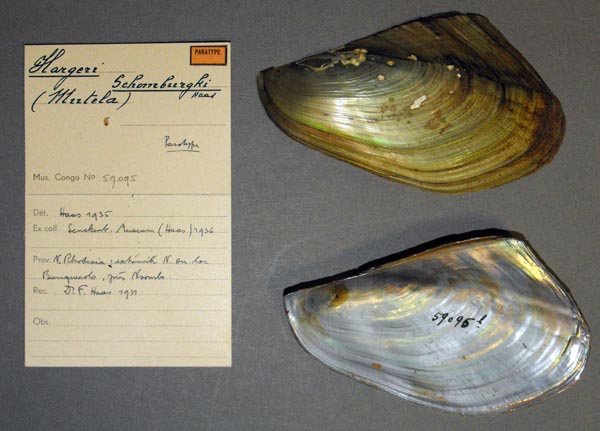 PARATYPE
Hargeri
Schomburgki
(Mutela) Haas
Paratype
Mus. Congo No 59095
Dét. Haas 1935
Ex coll. Senckenb. Museum (Haas) 1936
Prov. N. Rhodesia, extrémité N. du lac
Bangweolo, près Nsombo
Rec. Dr. F. Haas 1931
Obs.
59095